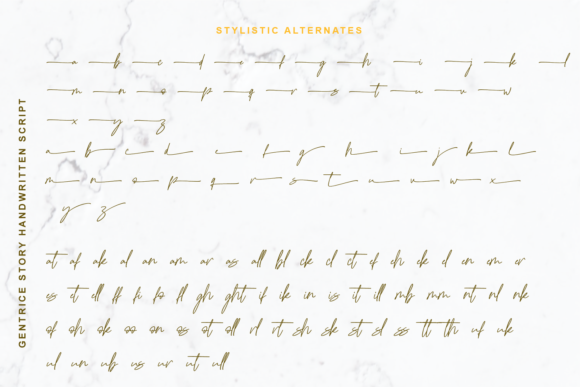 STYLISTIC ALTERNATES
GENTRICE STORY HANDWRITTEN SCRIPT
a b c d e f g h i j k l
m n o p q r s t u v w
x y z
a b c d e f g h i j k l
m n o p q r s t u v w x
y z
at af ak al an am ar as all bl ck cl ct cf ch ck el en em er
es et ell ff fi fo fl gh ght if ik in is it ill mb mm nt nl nk
of oh ok oo on os ot oll rl rt sh sk st sl ss tt th uf uk
ul un ub us ur ut ull